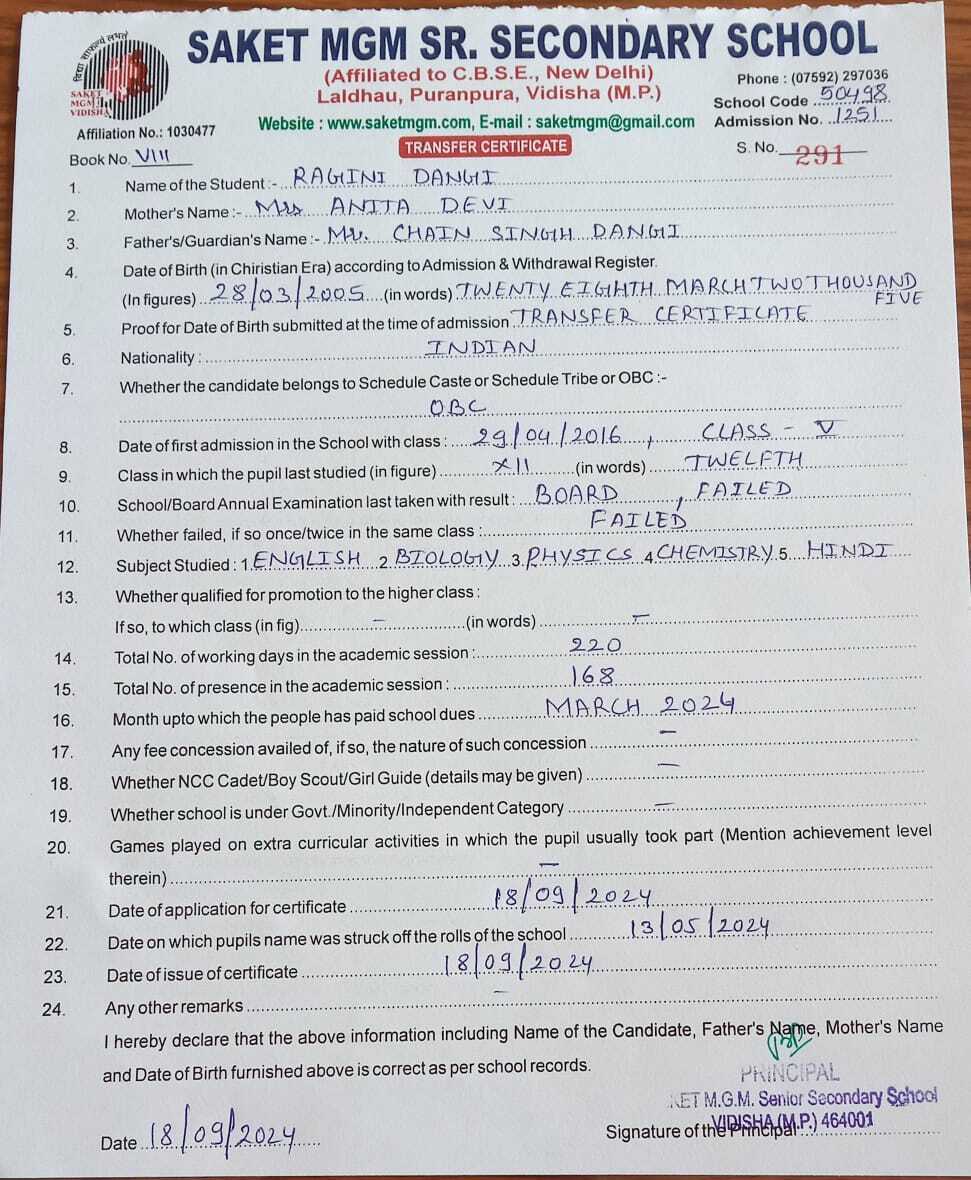 विद्या साफल्यं लभते
SAKET
MGM
VIDISHA
SAKET MGM SR. SECONDARY SCHOOL
(Affiliated to C.B.S.E., New Delhi)
Laldhau, Puranpura, Vidisha (M.P.)
Phone : (07592) 297036
School Code 50498
Website : www.saketmgm.com, E-mail : saketmgm@gmail.com
Admission No. 1251
Affiliation No.: 1030477
TRANSFER CERTIFICATE
Book No. VIII
S. No. 291
1. Name of the Student :- RAGINI DANGI
2. Mother's Name :- Mrs ANITA DEVI
3. Father's/Guardian's Name :- Mr. CHAIN SINGH DANGI
4. Date of Birth (in Chiristian Era) according to Admission & Withdrawal Register.
(In figures) 28/03/2005 (in words) TWENTY EIGHTH MARCH TWO THOUSAND
FIVE
5. Proof for Date of Birth submitted at the time of admission TRANSFER CERTIFICATE
6. Nationality : INDIAN
7. Whether the candidate belongs to Schedule Caste or Schedule Tribe or OBC :-
OBC
8. Date of first admission in the School with class : 29/04/2016, CLASS - V
9. Class in which the pupil last studied (in figure) XII (in words) TWELFTH
10. School/Board Annual Examination last taken with result : BOARD, FAILED
11. Whether failed, if so once/twice in the same class : FAILED
12. Subject Studied : 1. ENGLISH 2 BIOLOGY 3. PHYSICS 4 CHEMISTRY 5 HINDI
13. Whether qualified for promotion to the higher class :
If so, to which class (in fig) – (in words) –
14. Total No. of working days in the academic session : 220
15. Total No. of presence in the academic session : 168
16. Month upto which the people has paid school dues MARCH 2024
17. Any fee concession availed of, if so, the nature of such concession –
18. Whether NCC Cadet/Boy Scout/Girl Guide (details may be given) –
19. Whether school is under Govt./Minority/Independent Category –
20. Games played on extra curricular activities in which the pupil usually took part (Mention achievement level
therein) –
21. Date of application for certificate 18/09/2024
22. Date on which pupils name was struck off the rolls of the school 13/05/2024
23. Date of issue of certificate 18/09/2024
24. Any other remarks –
I hereby declare that the above information including Name of the Candidate, Father's Name, Mother's Name
and Date of Birth furnished above is correct as per school records.
PRINCIPAL
KET M.G.M. Senior Secondary School
VIDISHA (M.P.) 464001
Date 18/09/2024
Signature of the Principal